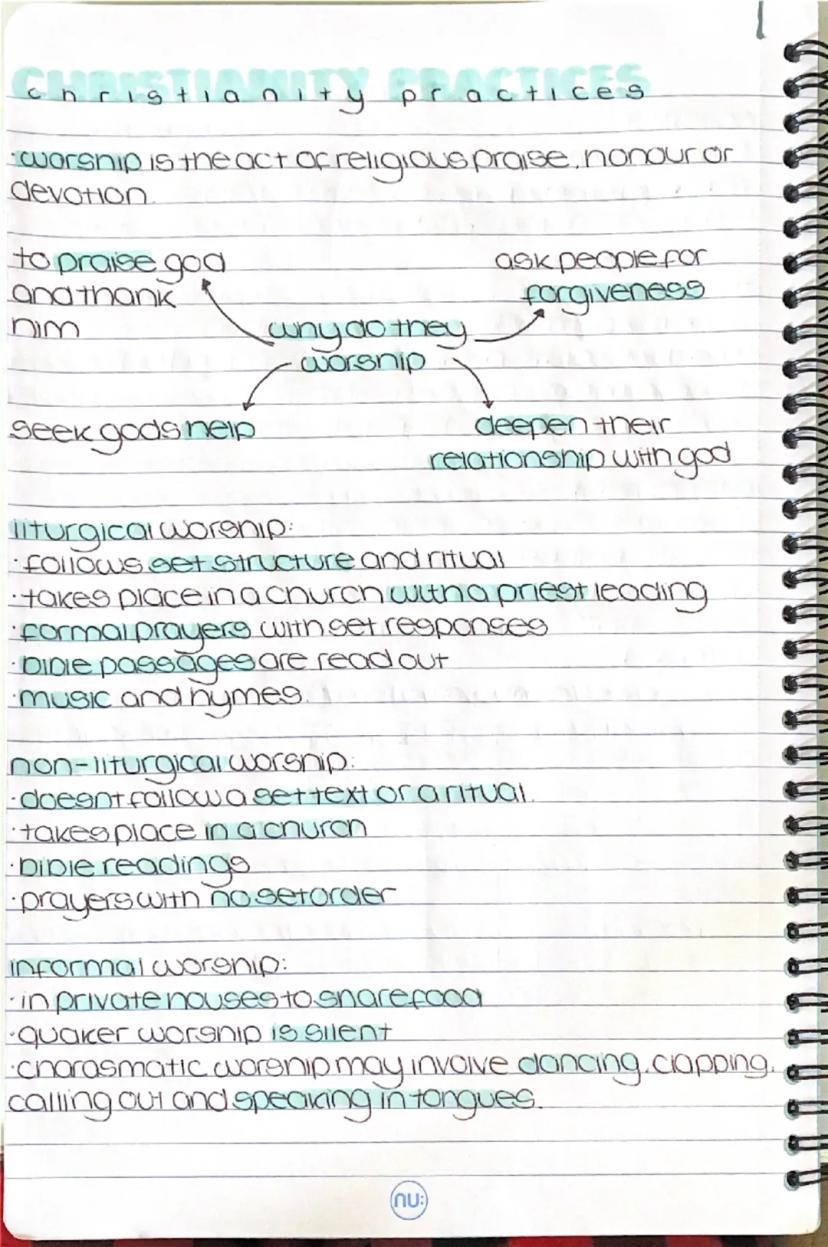 CHRISTIANITY PRACTICES
christianity practices
·worship is the act of religious praise, honour or
devotion.
to praise god
and thank
him
ask people for
forgiveness
why do they
worship
seek gods help
deepen their
relationship with god
liturgical worship:
·follows set structure and ritual
·takes place in a church with a priest leading
·formal prayers with set responses
·bible passages are read out
·music and hymes.
non-liturgical worship:
·doesnt follow a set text or a ritual.
·takes place in a church
·bible readings
·prayers with no set order
informal worship:
·in private houses to share food
·quaker worship is silent
·charasmatic worship may involve dancing, clapping,
calling out and speaking in tongues.
nu: